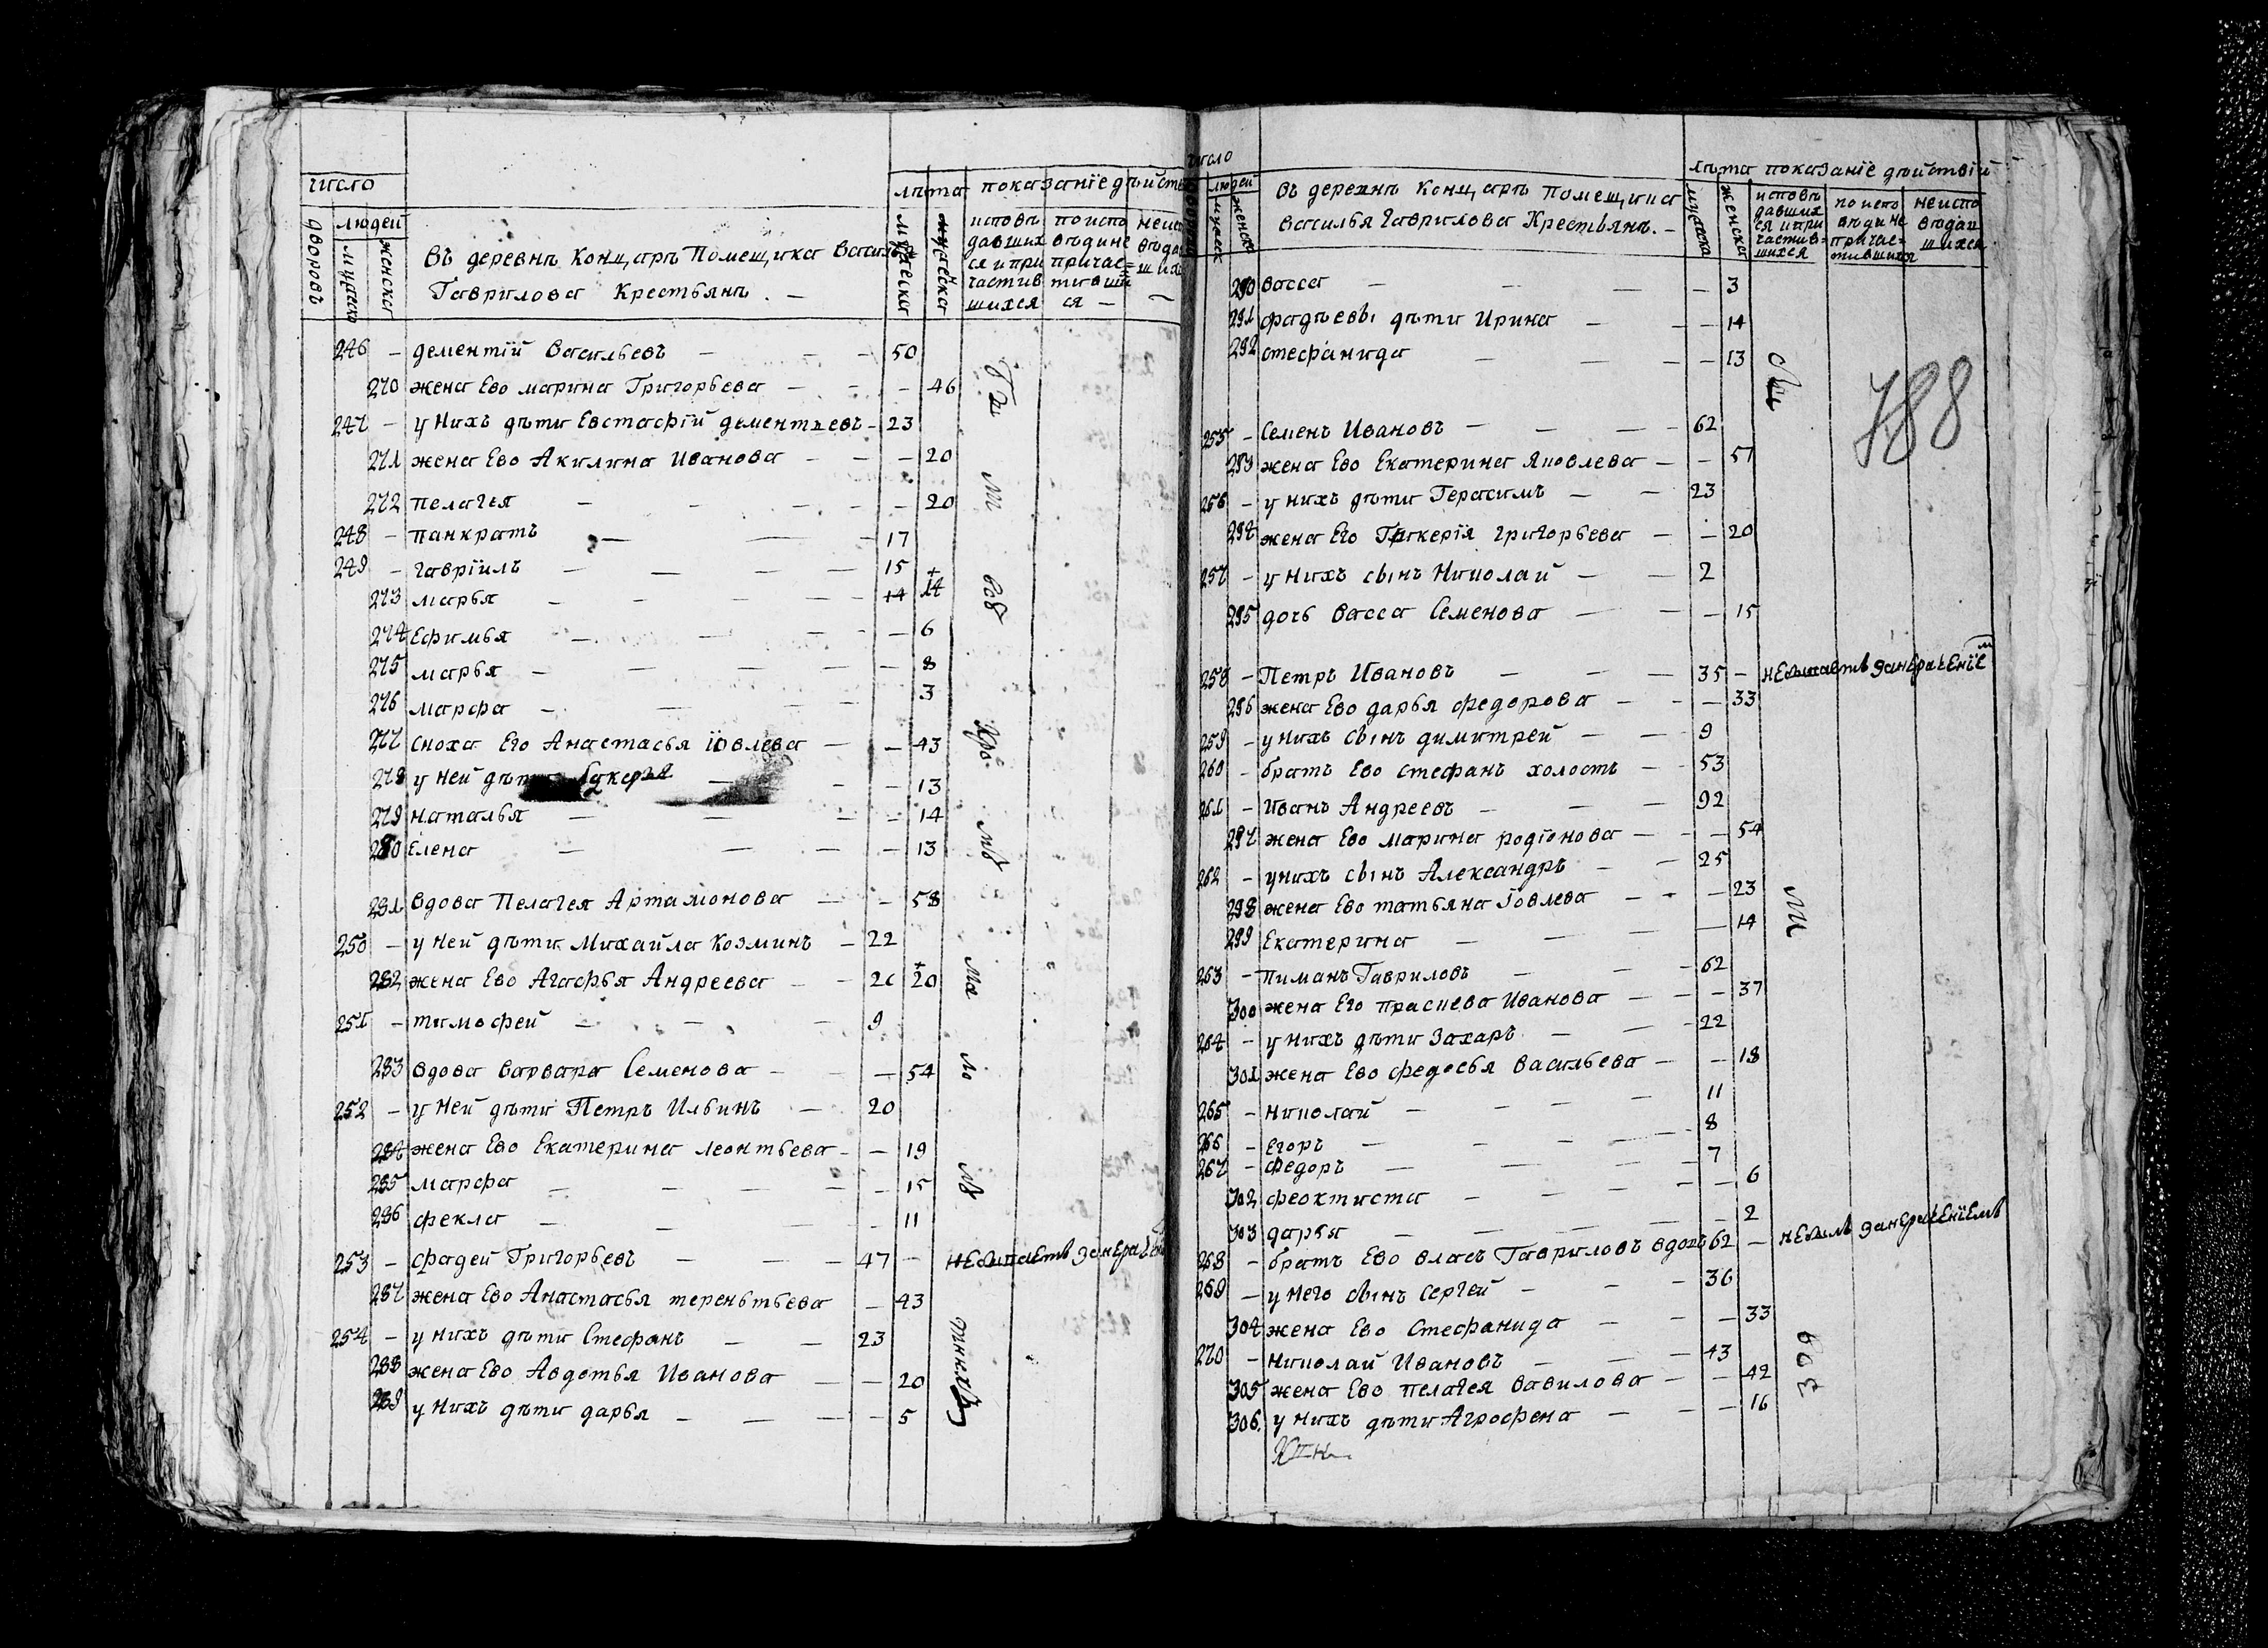 число
лѣта показанїе дѣйств
дворовъ
людей
мужеска
женска
Въ деревнѣ Конщарѣ Помещика Василья
Гаврилова Крестьянъ. —
мужеска
исповѣ
давших
ся и при
частив
шихся
по испо
вѣди не
причас=
тивши
ся —
неис
вѣда
ших
246 — дементїй Васильевъ — 50
270 жена Ево марина Григорьева — 46
247 — у Нихъ дѣти Евстафїй дементьевъ — 23
271 жена Ево Акилина Иванова — 20
272 пелагея — 20
248 — панкратъ — 17
249 — гаврїилъ — 15
273 марья — 14 + 14
274 Ефимья — 6
275 марья — 8
276 марфа — 3
277 сноха Его Анастасья їовлева — 43
278 у Ней дѣти — 13
279 наталья — 14
280 Елена — 13
281 вдова Пелагея Артамонова — 58
250 — у Ней дѣти Михайла Козминъ — 22
282 жена Ево Агафья Андреева — 20 + 20
251 — тимофей — 9
283 вдова Варвара Семенова — 54
252 — у Ней дѣти Петръ Ильинъ — 20
284 жена Ево Екатерина леонтьева — 19
285 марфа — 15
286 фекла — 11
253 — фадей Григорьевъ — 47 —
287 жена Ево Анастасья терентьева — 43
254 — у нихъ дѣти Стефанъ — 23
288 жена Ево Авдотья Иванова — 20
289 у Нихъ дѣти дарья — 5
число
людей
женска
Въ деревнѣ Конщарѣ Помещика
Василья Гаврилова Крестьянъ. —
лѣта показанїе дѣйствїй
мужеска
женска
исповѣ
давших
ся и при
частив=
шихся
по испо
вѣди не
причас=
тившихся
неиспо
вѣдав
шихся
788
290 васса — 3
291 фадѣевы дѣти Ирина — 14
292 стефанида — 13
255 — Семенъ Ивановъ — 62
293 жена Ево Екатерина Яковлева — 51
256 — у нихъ дѣти Герасимъ — 23
294 жена Его Гликерїя григорьева — 20
257 — у Нихъ сынъ Николай — 2
295 дочь васса Семенова — 15
258 — Петръ Ивановъ — 35 —
296 жена Ево дарья федорова — 33
259 — у нихъ сынъ димитрей — 9
260 — братъ Ево стефанъ холостъ — 53
261 — Иванъ Андреевъ — 92
297 жена Ево марина родїонова — 54
262 — у нихъ сынъ Александръ — 25
298 жена Ево татьяна Їовлева — 23
299 Екатерина — 14
263 — Пиманъ Гавриловъ — 62
300 жена Его прасковья Иванова — 37
264 — у нихъ дѣти Захаръ — 22
301 жена Ево федосья васильева — 18
265 — Николай — 11
266 — Егоръ — 8
267 — федоръ — 7
302 феоктиста — 6
303 дарья — 2
268 — братъ Ево власъ Гавриловъ вдовъ 62 —
269 — у него сынъ Сергей — 36
304 жена Ево Стефанида — 33
270 — Николай Ивановъ — 43
305 жена Ево пелагея вавилова — 42
306. у нихъ дѣти Агрофена — 16